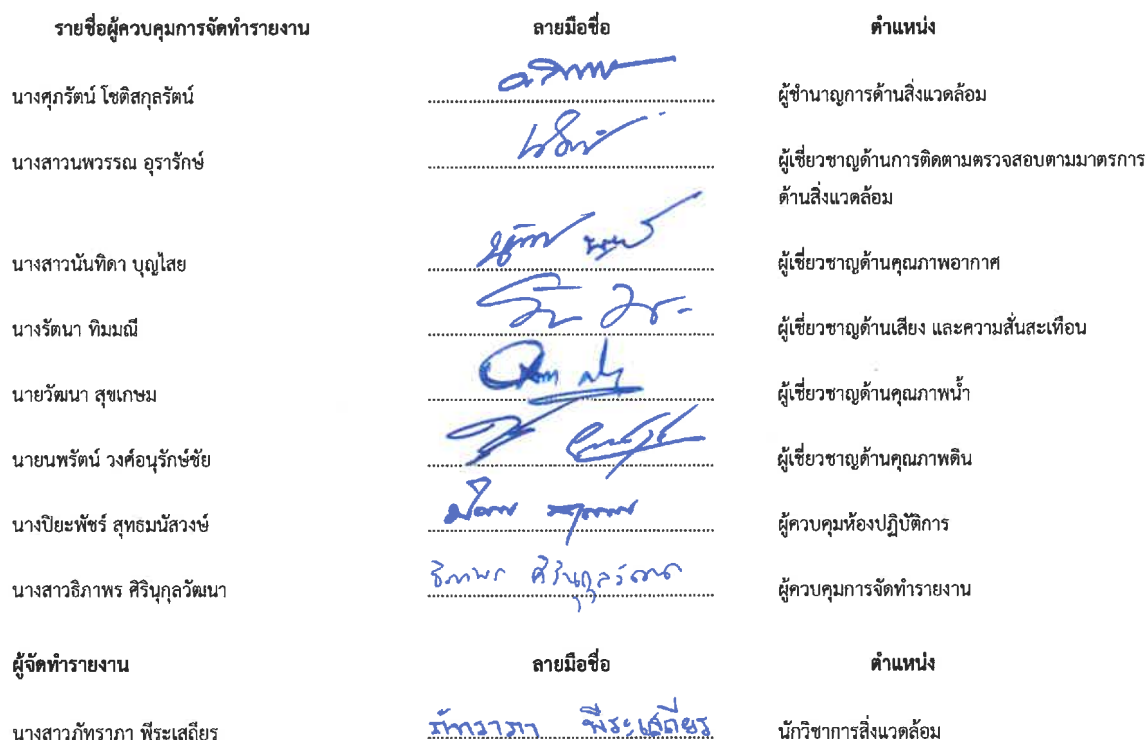 รายชื่อผู้ควบคุมการจัดทำรายงาน ลายมือชื่อ ตำแหน่ง
นางศุภรัตน์ โชติสกุลรัตน์ ผู้ชำนาญการด้านสิ่งแวดล้อม
นางสาวนพวรรณ อุรารักษ์ ผู้เชี่ยวชาญด้านการติดตามตรวจสอบตามมาตรการ
ด้านสิ่งแวดล้อม
นางสาวนันทิดา บุญไสย ผู้เชี่ยวชาญด้านคุณภาพอากาศ
นางรัตนา ทิมมณี ผู้เชี่ยวชาญด้านเสียง และความสั่นสะเทือน
นายวัฒนา สุขเกษม ผู้เชี่ยวชาญด้านคุณภาพน้ำ
นายนพรัตน์ วงศ์อนุรักษ์ชัย ผู้เชี่ยวชาญด้านคุณภาพดิน
นางปิยะพัชร์ สุทธมนัสวงษ์ ผู้ควบคุมห้องปฏิบัติการ
นางสาวธิภาพร ศิรินุกุลวัฒนา ธิภาพร ศิรินุกุลวัฒนา ผู้ควบคุมการจัดทำรายงาน
ผู้จัดทำรายงาน ลายมือชื่อ ตำแหน่ง
นางสาวภัทราภา พีระเสถียร ภัทราภา พีระเสถียร นักวิชาการสิ่งแวดล้อม